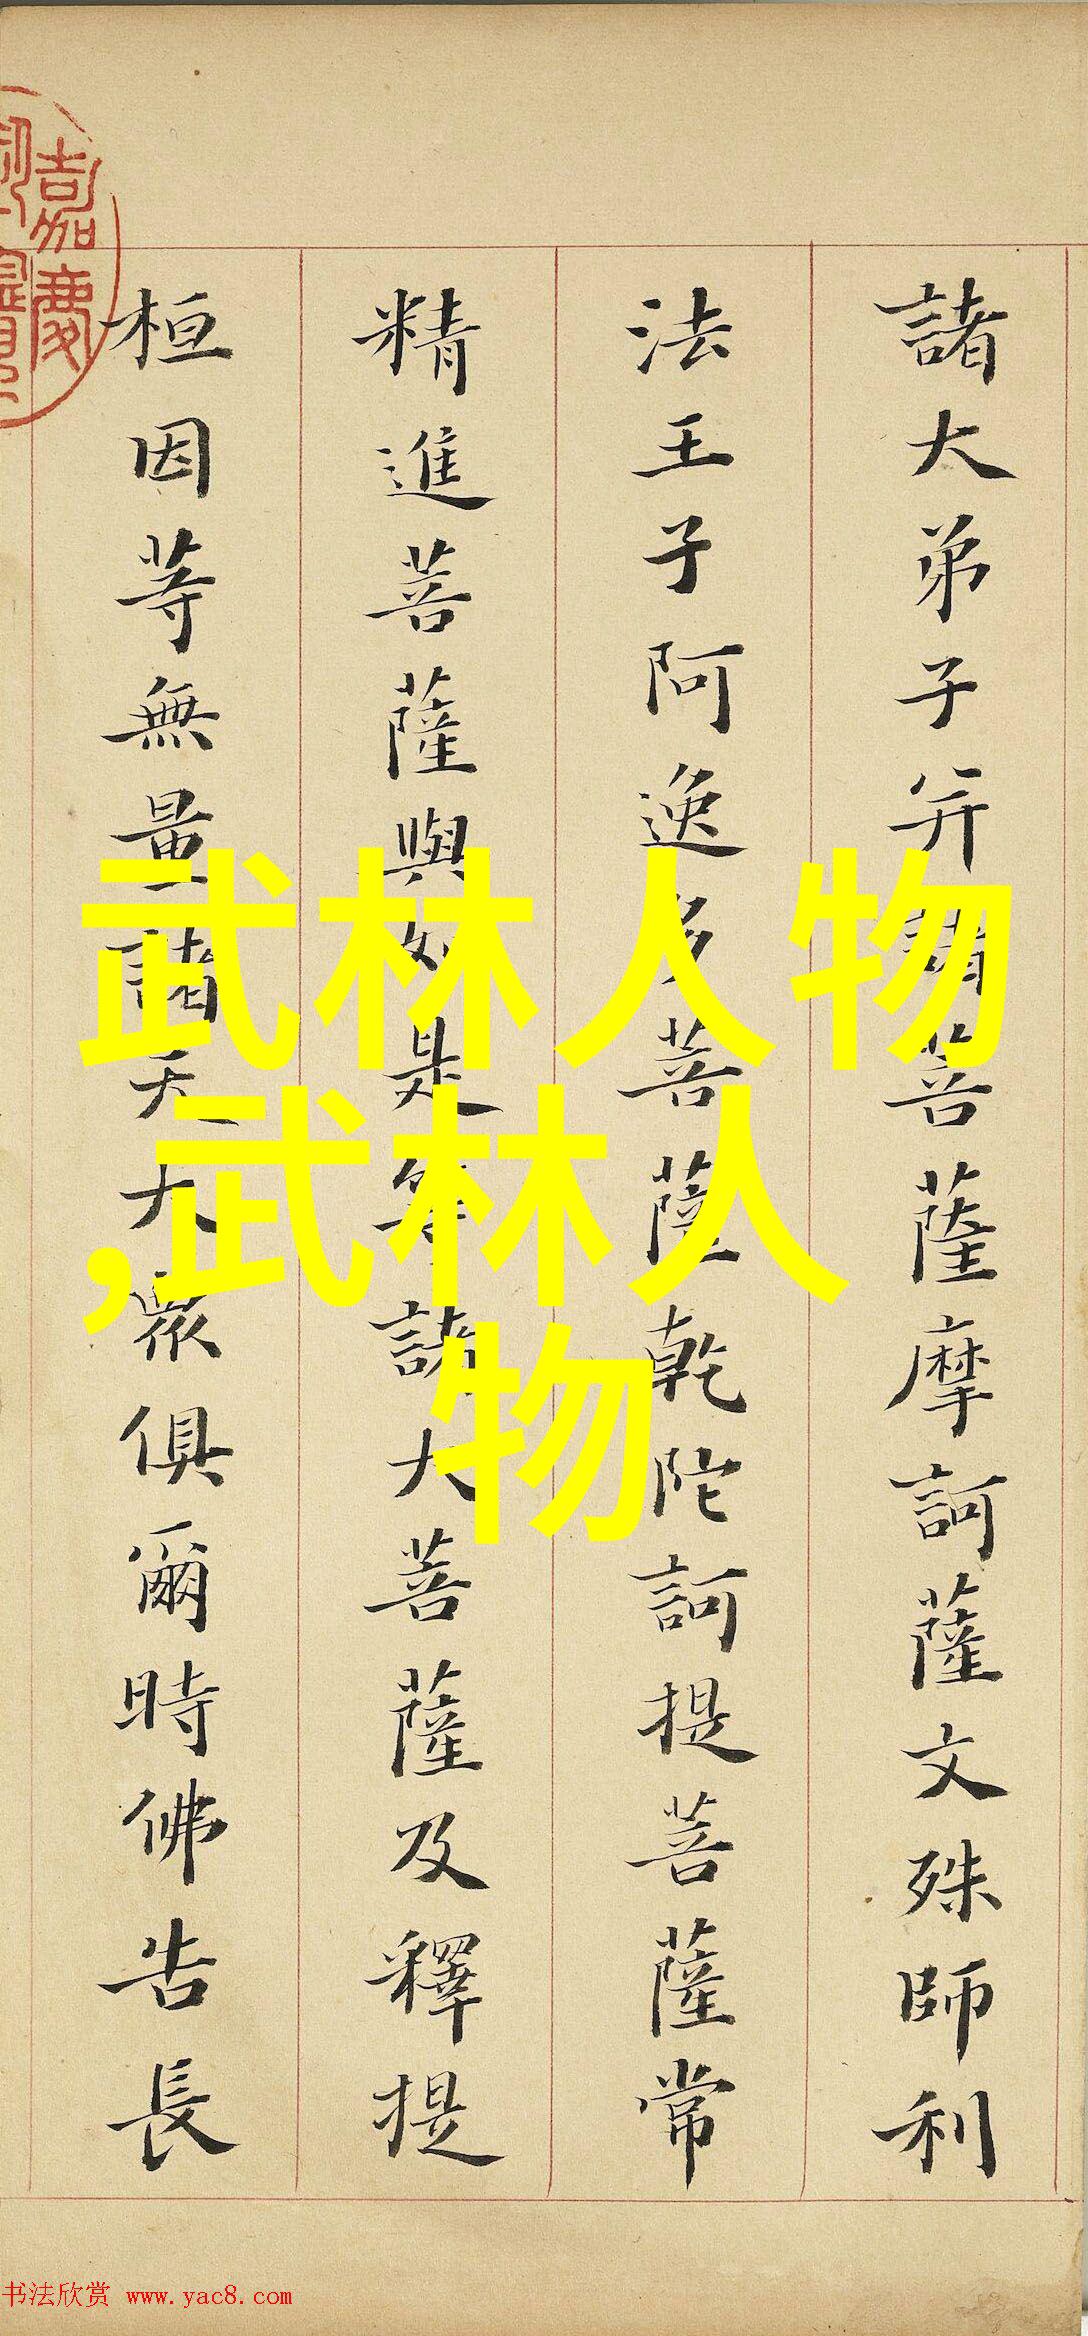 諸大弟子并諸菩薩摩訶薩文殊師利
法王子阿逸多菩薩乾陀訶提菩薩常
精進菩薩與如是等諸大菩薩及釋提
桓因等無量諸天大眾俱爾時佛告長
嘉慶
武林人物
,武林人
物
书法欣赏 www.yac8.com